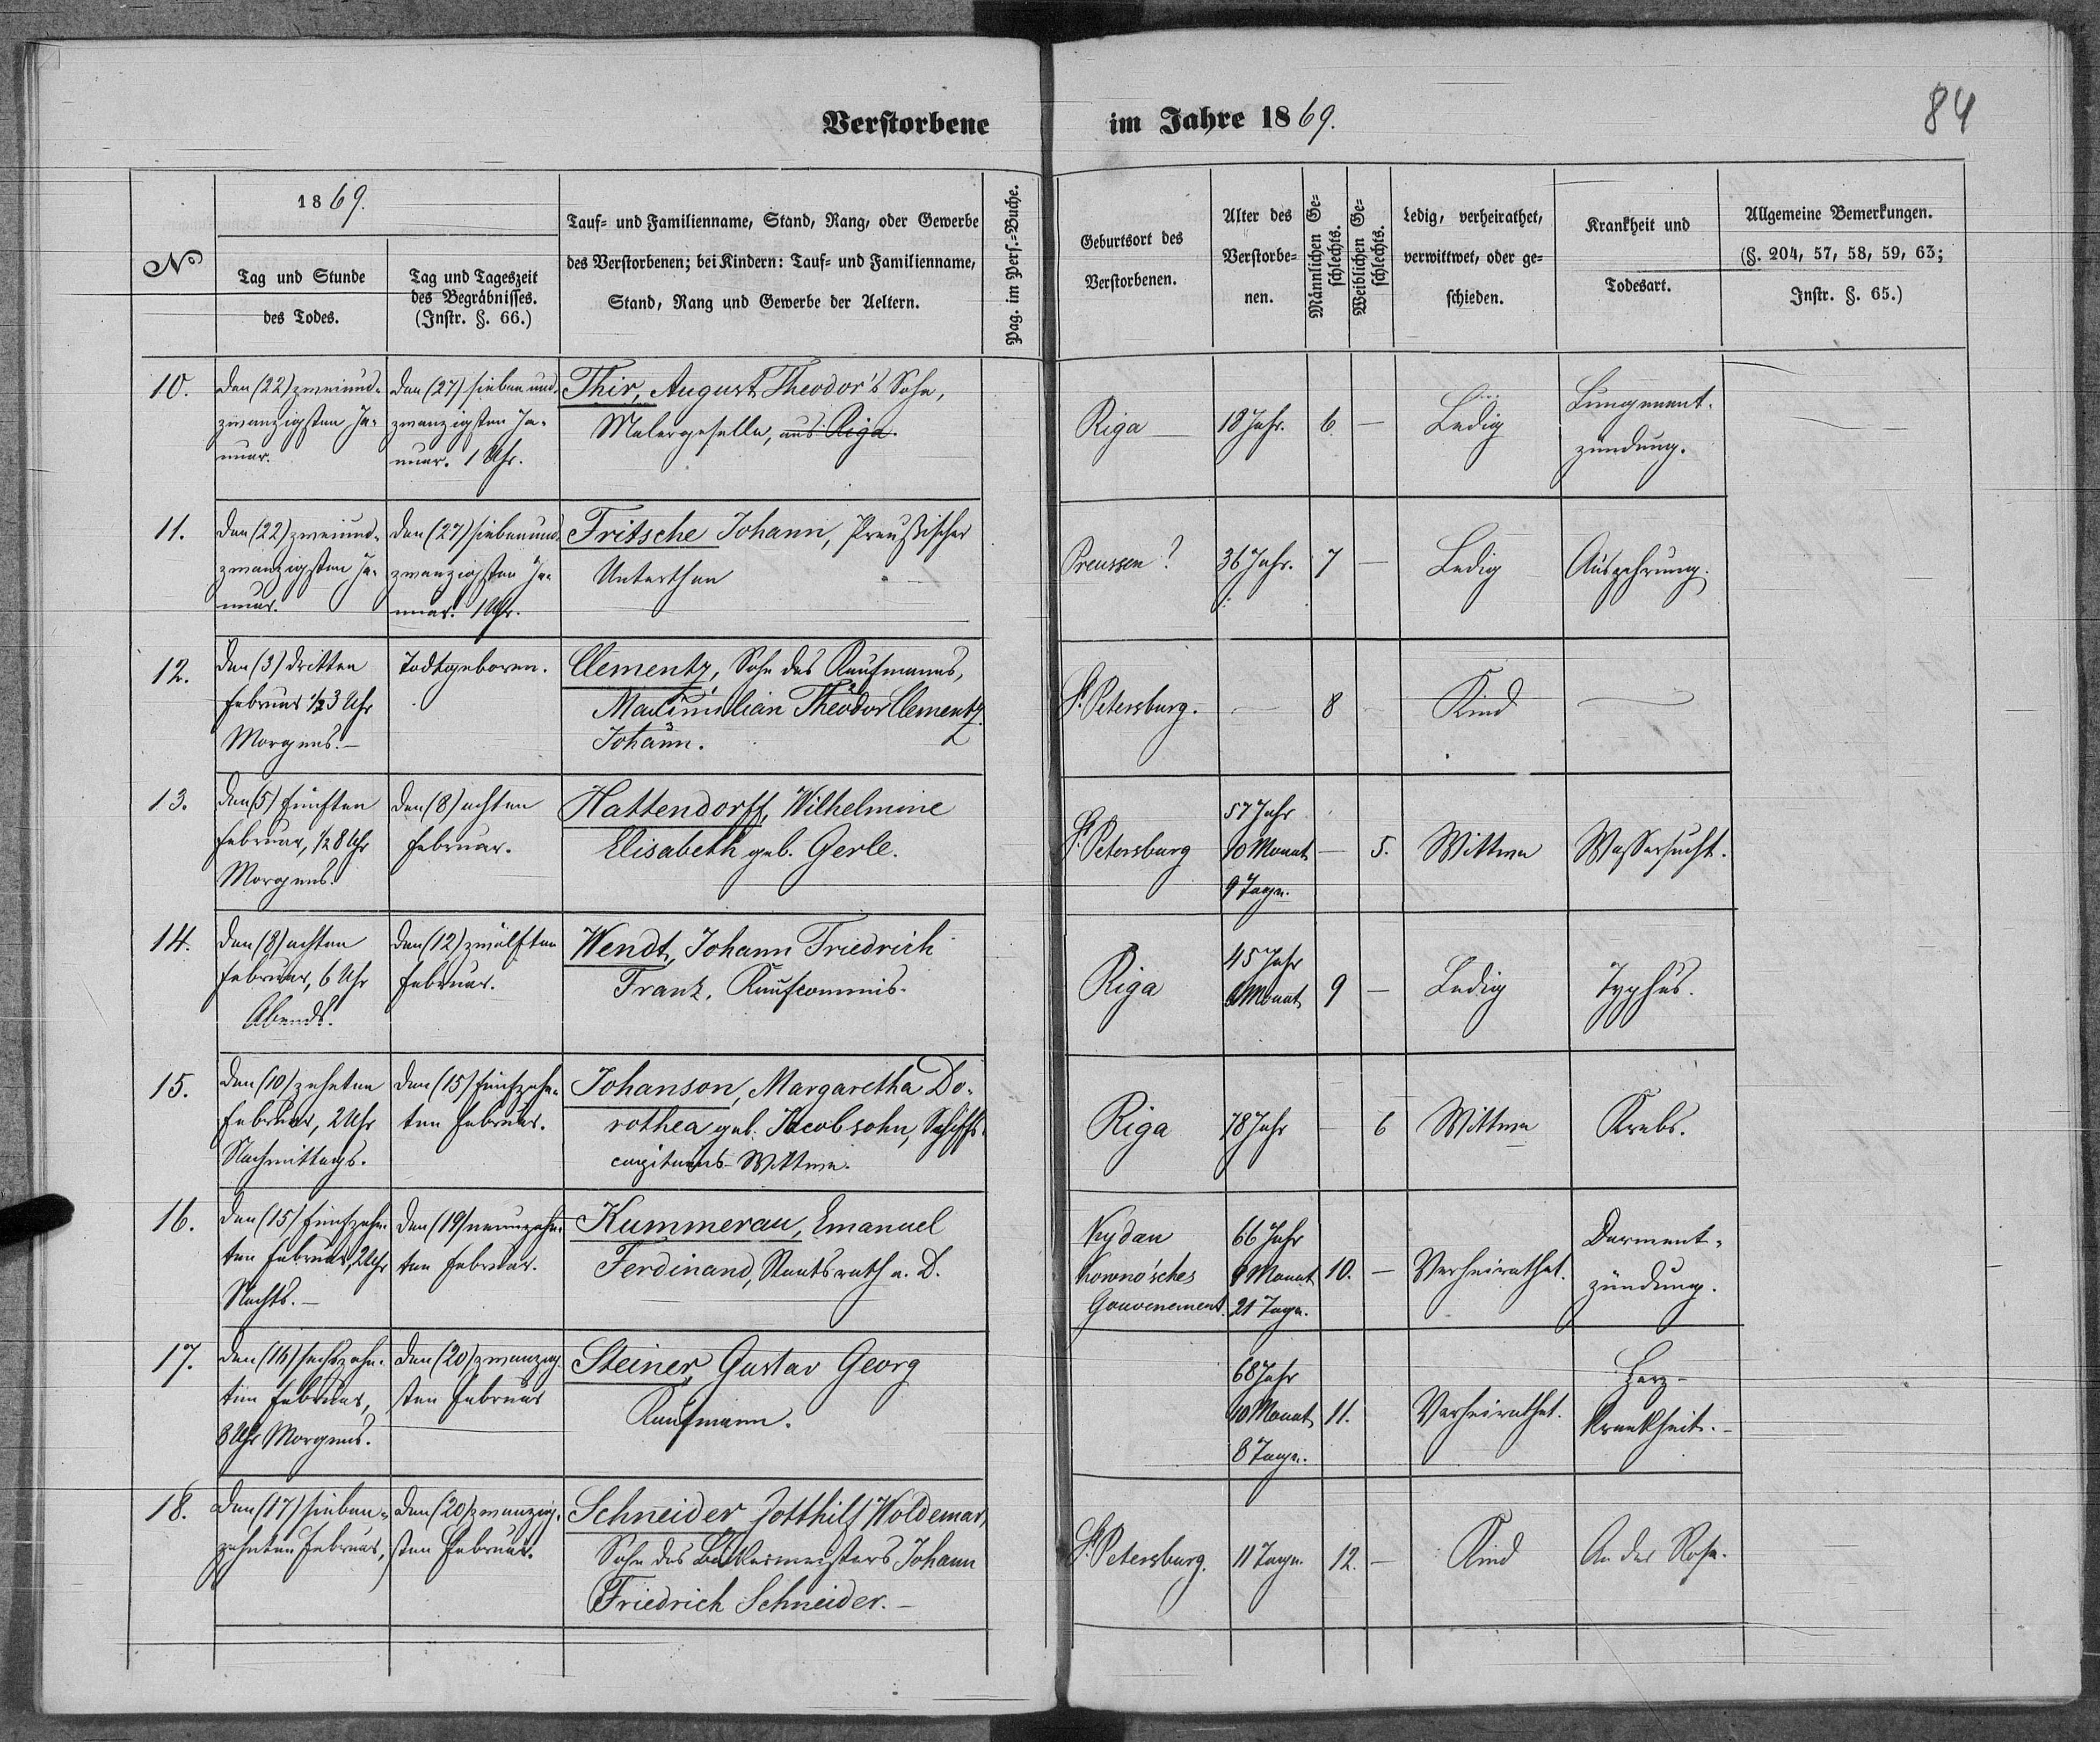 Verstorbene im Jahre 1869.
84
№
1869.
Tag und Stunde
des Todes.
Tag und Tageszeit
des Begräbnisses.
(Instr. §. 66.)
Tauf= und Familienname, Stand, Rang, oder Gewerbe
des Verstorbenen; bei Kindern: Tauf= und Familienname,
Stand, Rang und Gewerbe der Aeltern.
Pag. im Pers.=Buche.
Geburtsort des
Verstorbenen.
Alter des
Verstorbe=
nen.
Männlichen Ge=
schlechts.
Weiblichen Ge=
schlechts.
Ledig, verheirathet,
verwittwet, oder ge=
schieden.
Krankheit und
Todesart.
Allgemeine Bemerkungen.
(§. 204, 57, 58, 59, 63;
Instr. §. 65.)
10.
den (22) zweiund-
zwanzigsten Ja-
nuar.
den (27) siebenund-
zwanzigsten Ja-
nuar. 1 Uhr.
Thir, August Theodor's Sohn,
Malergeselle, aus Riga.
Riga
18 Jahr.
6.
—
Ledig
Lungenent-
zündung.
11.
den (22) zweiund-
zwanzigsten Ja-
nuar.
den (27) siebenund-
zwanzigsten Ja-
nuar. 1 Uhr.
Fritsche Johann, Preußischer
Unterthan
Preussen?
36 Jahr.
7
—
Ledig
Auszehrung.
12.
den (3) dritten
Februar ½3 Uhr
Morgens.—
Todtgeboren.
Clementz, Sohn des Kaufmanns,
Maximilian Theodor Clementz
Johann.
St. Petersburg.
—
8
Kind
—
13.
den (5) fünften
Februar, ½8 Uhr
Morgens.
den (8) achten
Februar.
Hattendorff, Wilhelmine
Elisabeth geb. Gerle.
St. Petersburg
57 Jahr
10 Monat
9 Tage.
—
5.
Wittwe
Wassersucht.
14.
den (8) achten
Februar, 6 Uhr
Abends.
den (12) zwölften
Februar.
Wendt, Johann Friedrich
Franz. Kaufcommis.
Riga
45 Jahr
Monat
9
—
Ledig
Typhus.
15.
den (10) zehnten
Februar, 2 Uhr
Nachmittags.
den (15) fünfzehn-
ten Februar.
Johanson, Margaretha Do-
rothea geb. Jacobsohn, Schiffs-
capitains-Wittwe.
Riga
78 Jahr
—
6
Wittwe
Krebs.
16.
den (15) fünfzehn-
ten Februar, 2 Uhr
Nachts.—
den (19) neunzehn-
ten Februar.
Kummerau, Emanuel
Ferdinand, Staatsrath a. D.
Kydan
Kowno'sches
Gouvernement.
66 Jahr
9 Monat
21 Tage.
10.
—
Verheirathet.
Darment-
zündung.
17.
den (16) sechszehn-
ten Februar,
8 Uhr Morgens.
den (20) zwanzig-
sten Februar
Steiner, Gustav Georg
Kaufmann.
68 Jahr
10 Monat
8 Tage.
11.
Verheirathet.
Herz-
krankheit.—
18.
den (17) sieben-
zehnten Februar,
den (20) zwanzig-
sten Februar.
Schneider Gotthilf Woldemar,
Sohn des Bäckermeisters Johann
Friedrich Schneider.—
St. Petersburg.
11 Tage.
12.
—
Kind
An der Rose.